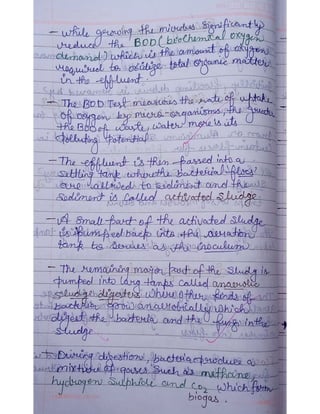 - while growing the microbes significantly
reduce the BOD (biochemical oxygen
demand) which is the amount of oxygen
required to oxidize total organic matter
in the effluent.
- The BOD Test measures the rate of uptake
of oxygen by micro-organisms, the greater
the BOD of waste water more is its
polluting potential
- The effluent is then passed into a
settling tank where the bacterial flocs
are allowed to sediment and the
sediment is called activated sludge.
- A small part of the activated sludge
is pumped back into the aeration
tank to serves as the inoculum
- The remaining major part of the sludg is
pumped into larg tanks called anaerobic
sludge digesters where other kinds of
bacteria grow anaerobically which
digest the bacteria and the fungi in the
sludge
- During digestion, bacteria produce a
mixture of gases such as methane
hydrogen sulphide and CO2 which form
biogas.